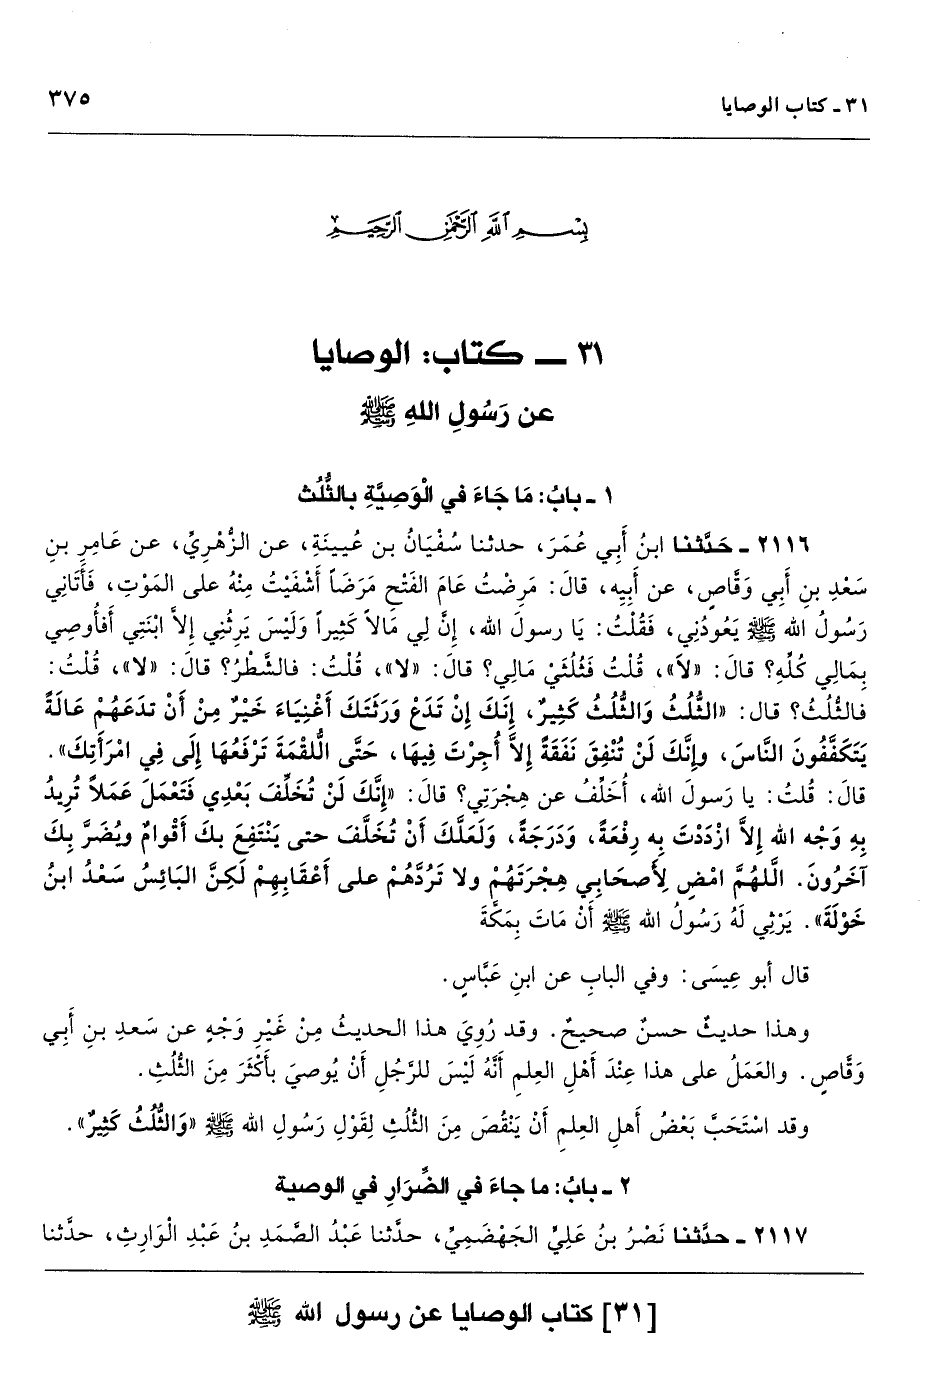 ٣١ ـ كتاب الوصايا ٣٧٥
بِسْمِ اللَّهِ الرَّحْمَٰنِ الرَّحِيمِ
٣١ ــ كتاب: الوصايا
عن رَسُولِ اللهِ ﷺ
١ ـ بابُ: مَا جَاءَ في الْوَصِيَّةِ بالثُّلُث
٢١١٦ ـ حَدَّثنا ابنُ أَبِي عُمَرَ، حدثنا سُفْيَانُ بن عُيينَةِ، عن الزُّهْرِيِّ، عن عَامِرِ بنِ
سَعْدِ بنِ أَبِي وَقَّاصٍ، عن أَبِيِه، قالَ: مَرِضْتُ عَامَ الفَتْحِ مَرَضَاً أَشْفَيْتُ مِنْهُ على المَوْتِ، فَأَتَانِي
رَسُولُ الله ﷺ يَعُودُنِي، فَقُلْتُ: يَا رسولَ الله، إنَّ لِي مَالاً كَثِيراً وَلَيْسَ يَرِثُنِي إلاَّ ابْنَتِي أَفأُوصِي
بِمَالِي كُلِّهِ؟ قالَ: «لاَ»، قُلْتُ فَثُلُثَيْ مَالِي؟ قالَ: «لا»، قُلْتُ: فالشَّطْرُ؟ قالَ: «لا»، قُلْتُ:
فالثُّلُثُ؟ قال: «الثُّلُثُ وَالثُّلُثُ كَثِيرٌ، إِنَكَ إِنْ تَدَعْ وَرَثَتَكَ أَغْنِيَاءَ خَيْرٌ مِنْ أَنْ تدَعَهُمْ عَالَةً
يَتَكَفَّفُونَ النَّاسَ، وإِنَّكَ لَنْ تُنْفِقَ نَفَقَةً إِلاَّ أُجِرْتَ فِيهَا، حَتَّى اللُّقْمَةَ تَرْفَعُهَا إِلَى فِي امْرَأَتِكَ».
قالَ: قُلتُ: يا رَسولَ الله، أُخَلِّفُ عن هِجْرَتِي؟ قالَ: «إنَّكَ لَنْ تُخَلِّفَ بَعْدِي فَتَعْمَلَ عَمَلاً تُرِيدُ
بِهِ وَجْه الله إِلاَّ ازْدَدْتَ بِه رِفْعَةً، وَدَرَجَةً، وَلَعَلَّكَ أَنْ تُخَلَّفَ حتى يَنْتَفِعَ بكَ أَقْوامٌ ويُضَرَّ بِكَ
آخَرُونَ. الَّلهُمَّ امْضِ لِأَصحَابِي هِجْرَتَهُمْ ولا تَرُدَّهُمْ على أَعْقَابِهِمْ لَكِنَّ البَائِسُ سَعْدُ ابنُ
خَوْلَةَ». يَرْثِي لَهُ رَسُولُ الله ﷺ أَنْ مَاتَ بِمَكَّةَ
قال أبو عِيسَى: وفي البابِ عن ابنِ عَبَّاسٍ.
وهذا حديثٌ حسنٌ صحيحٌ. وقد رُوِيَ هذا الحديثُ مِنْ غَيْرِ وَجْهٍ عن سَعدِ بنِ أَبِي
وَقَّاصٍ. والعَمَلُ على هذا عِنْدَ أَهْلِ العِلمِ أَنَّهُ لَيْسَ للرَّجُلِ أَنْ يُوصيَ بأَكْثَرَ مِنَ الثُّلُثِ.
وقد اسْتَحَبَّ بَعْضُ أَهلِ العِلمِ أَنْ يَنْقُصَ مِنَ الثُّلثِ لِقَوْلِ رَسُولِ الله ﷺ «وَالثُّلُثُ كَثِيرٌ».
٢ ـ بابُ: ما جاءَ في الضِّرَارِ في الوصية
٢١١٧ ـ حدَّثنا نَصْرُ بنُ عَلِيٍّ الجَهْضَمِيُّ، حدَّثنا عَبْدُ الصَّمَدِ بنُ عَبْدِ الْوَارِثِ، حدَّثنا
[٣١] كتاب الوصايا عن رسول الله ﷺ